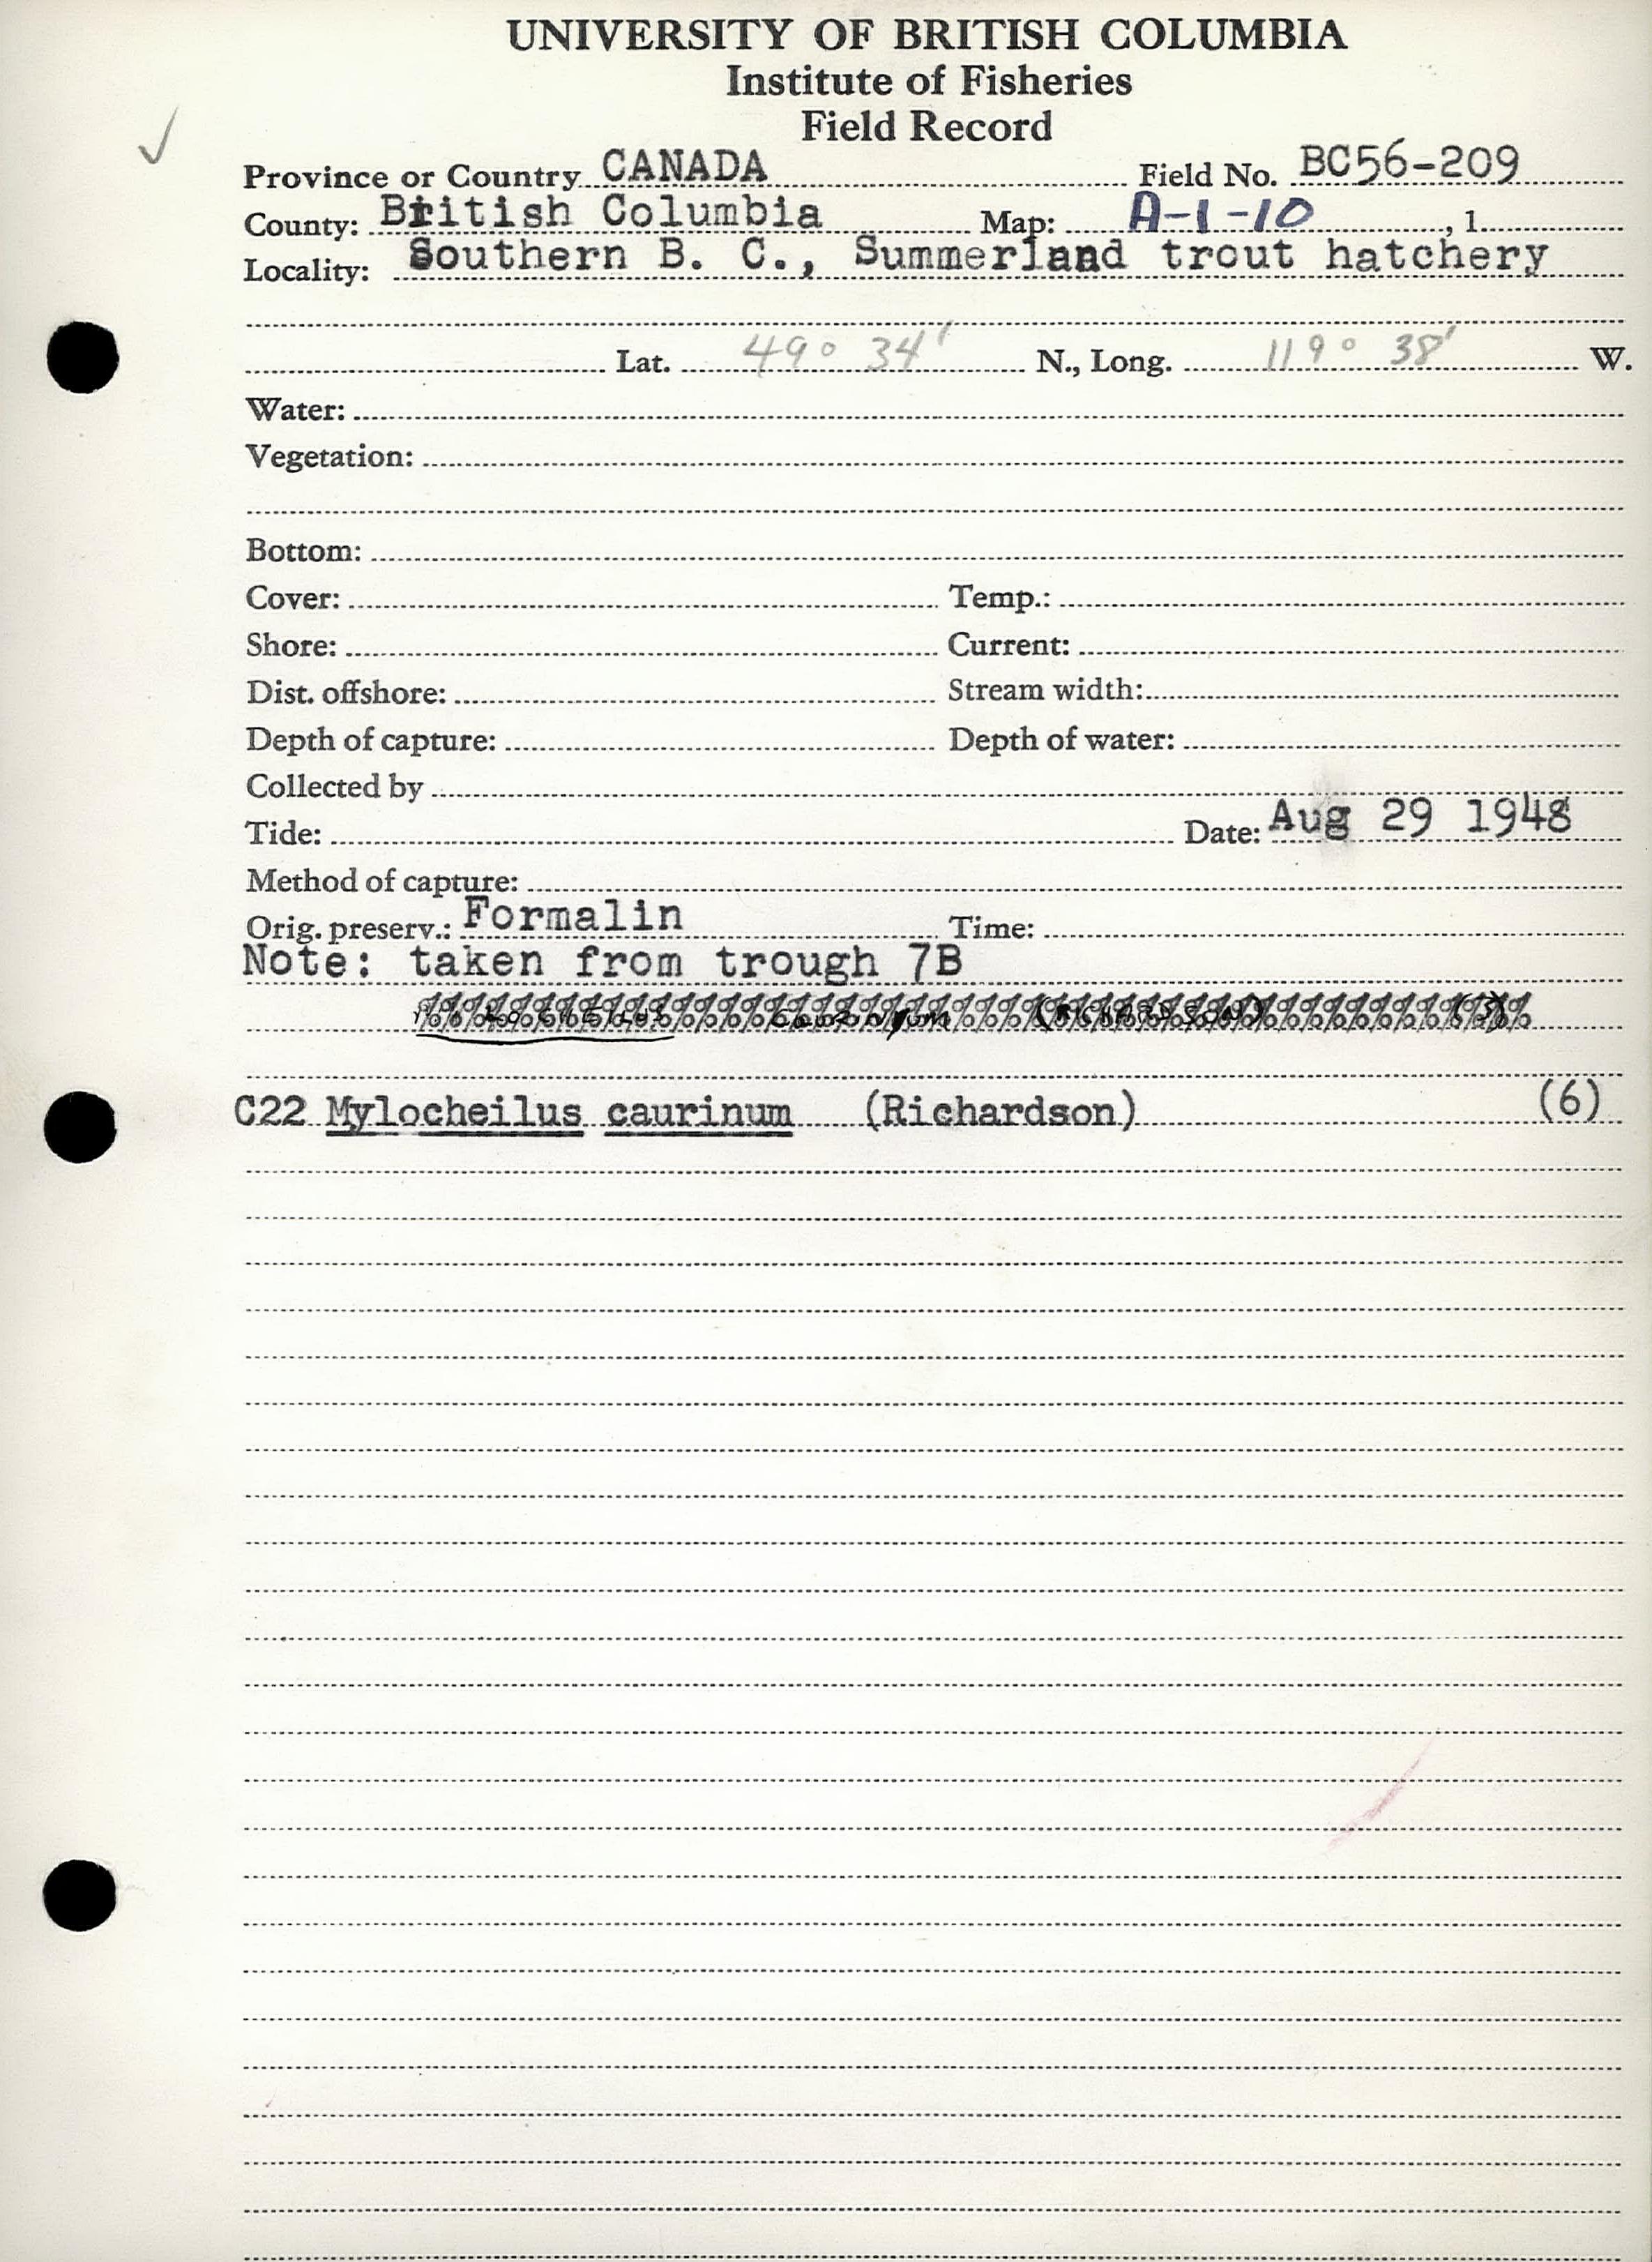 UNIVERSITY OF BRITISH COLUMBIA
Institute of Fisheries
Field Record
Province or Country CANADA Field No. BC56-209
County: British Columbia Map: A-1-10, 1
Locality: Southern B. C., Summerland trout hatchery
Lat. 49° 34' N., Long. 119° 38' W.
Water:
Vegetation:
Bottom:
Cover: Temp.:
Shore: Current:
Dist. offshore: Stream width:
Depth of capture: Depth of water:
Collected by
Tide: Date: Aug 29 1948
Method of capture:
Orig. preserv.: Formalin Time:
Note: taken from trough 7B
C22 Mylocheilus caurinum (Richardson) (6)